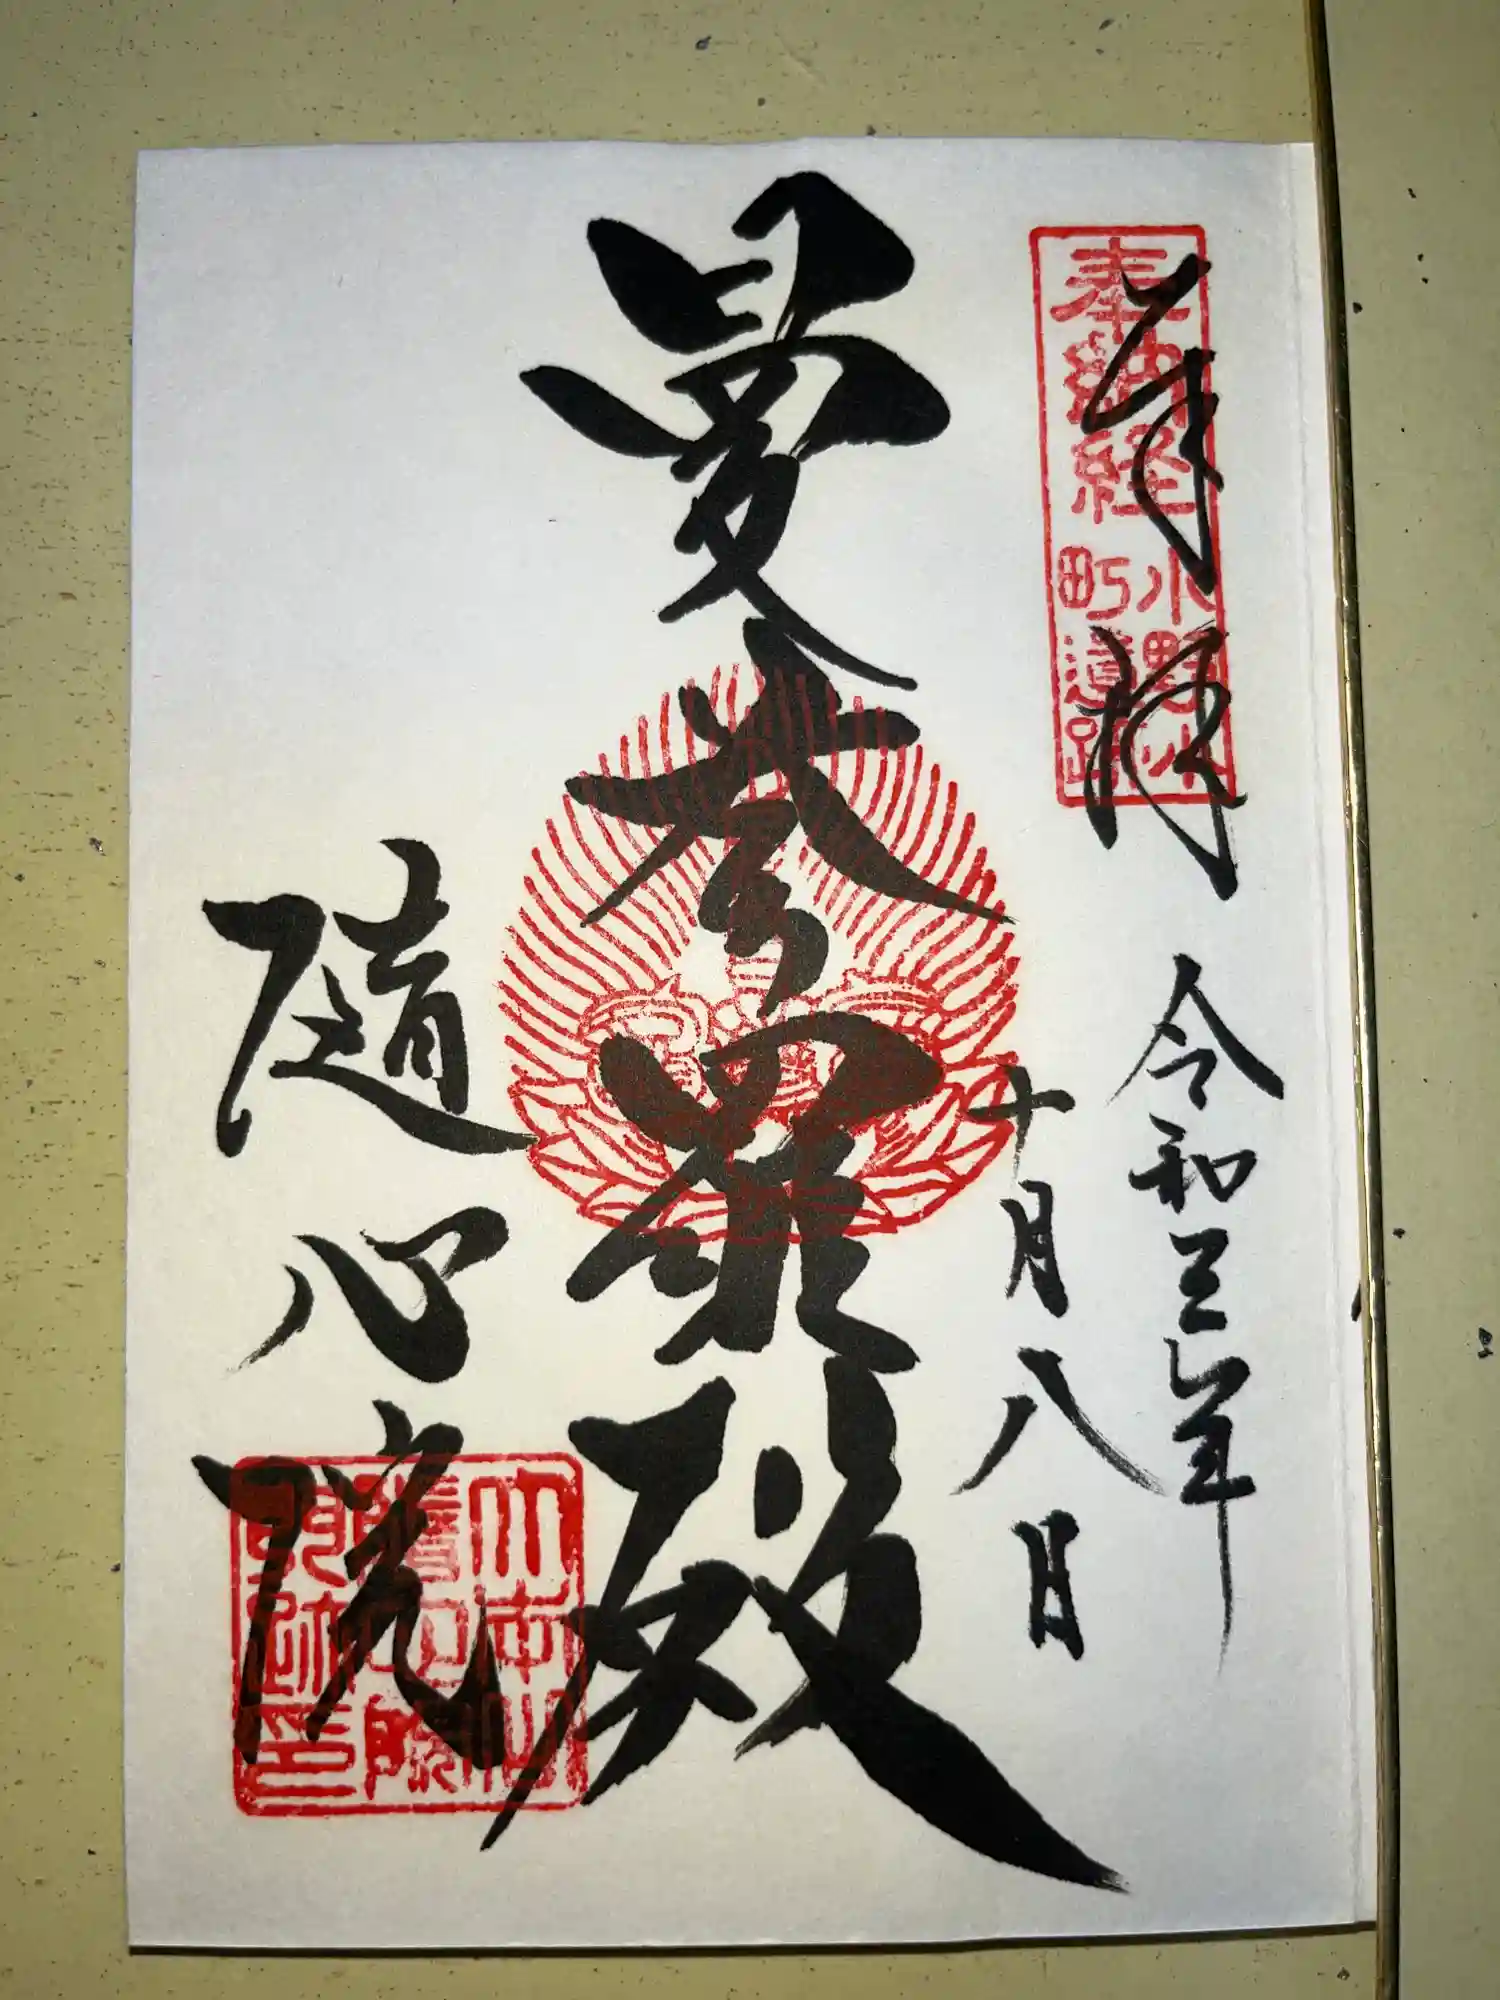 奉拝
奉納経
小野小
町遺跡
令和三年
十月八日
曼荼羅殿
隨心院
大本山
隨心院
門跡印